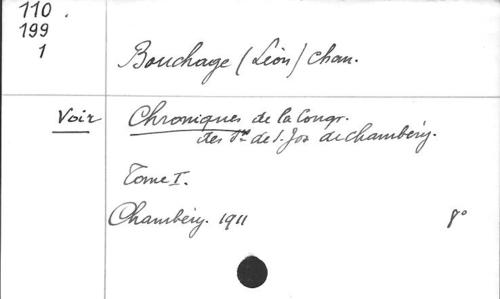 110.
199
1
Bouchage (Léon) chan.
Voir Chroniques de la Congr.
des Srs de S. Jos de Chambéry.
Tome I.
Chambéry. 1911 8°